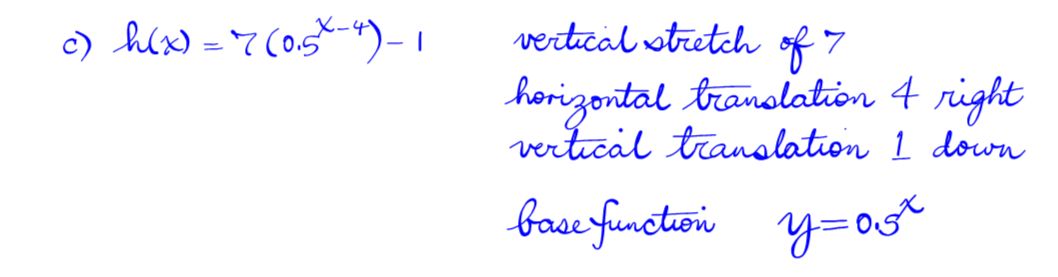 c) h(x) = 7(0.5^{x-4}) - 1 vertical stretch of 7
horizontal translation 4 right
vertical translation 1 down
base function y = 0.5^x